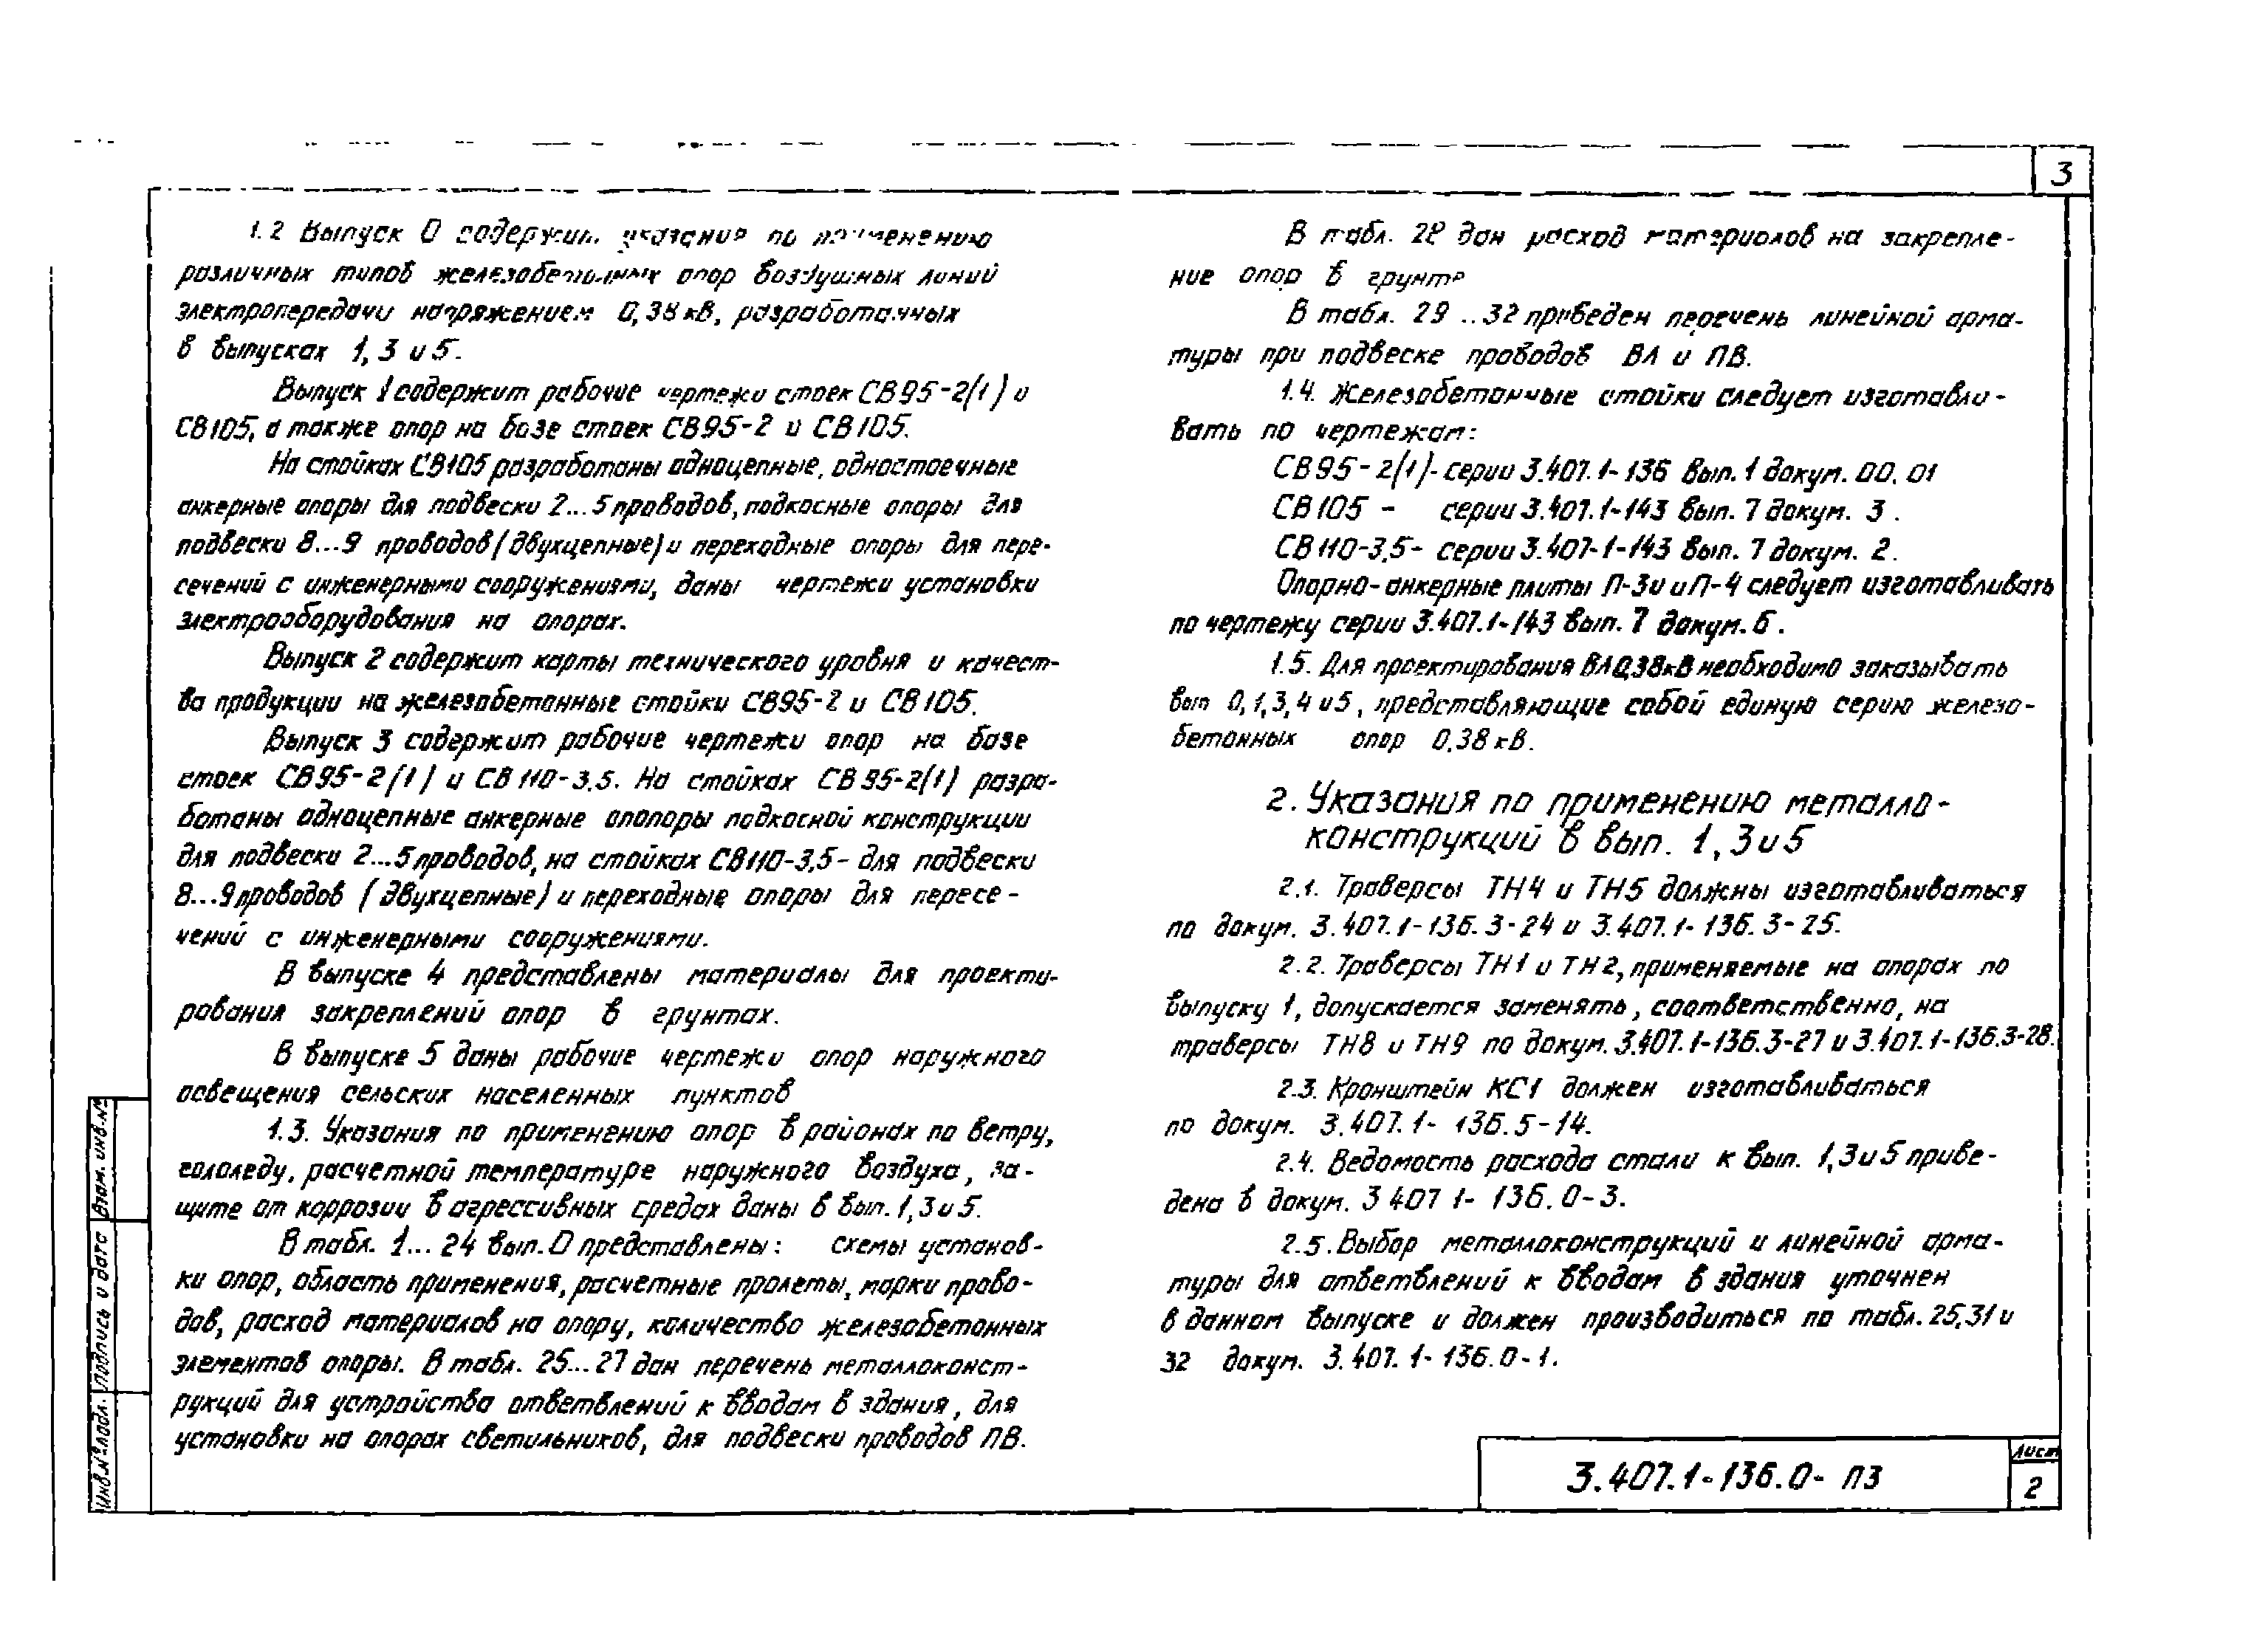 3
1.2 Выпуск 0 содержит указания по применению
различных типов железобетонных опор воздушных линий
электропередачи напряжением 0,38 кВ, разработанных
в выпусках 1, 3 и 5.
Выпуск 1 содержит рабочие чертежи стоек СВ95-2(1) и
СВ105, а также опор на базе стоек СВ95-2 и СВ105.
На стойках СВ105 разработаны одноцепные, одностоечные
анкерные опоры для подвески 2...5 проводов, подкосные опоры для
подвески 8...9 проводов (двухцепные) и переходные опоры для пере-
сечений с инженерными сооружениями, даны чертежи установки
электрооборудования на опорах.
Выпуск 2 содержит карты технического уровня и качест-
ва продукции на железобетонные стойки СВ95-2 и СВ105.
Выпуск 3 содержит рабочие чертежи опор на базе
стоек СВ95-2(1) и СВ110-3,5. На стойках СВ95-2(1) разра-
ботаны одноцепные анкерные опопоры подкосной конструкции
для подвески 2...5 проводов, на стойках СВ110-3,5- для подвески
8...9 проводов (двухцепные) и переходные опоры для пересе-
чений с инженерными сооружениями.
В выпуске 4 представлены материалы для проекти-
рования закреплений опор в грунтах.
В выпуске 5 даны рабочие чертежи опор наружного
освещения сельских населенных пунктов
1.3. Указания по применению опор в районах по ветру,
гололеду, расчетной температуре наружного воздуха, за-
щите от коррозии в агрессивных средах даны в вып. 1, 3 и 5.
В табл. 1... 24 вып. 0 представлены: схемы установ-
ки опор, область применения, расчетные пролеты, марки прово-
дов, расход материалов на опору, количество железобетонных
элементов опоры. В табл. 25...27 дан перечень металлоконст-
рукций для устройства ответвлений к вводам в здания, для
установки на опорах светильников, для подвески проводов ПВ.
В табл. 28 дан расход материалов на закрепле-
ние опор в грунте
В табл. 29 ..32 приведен перечень линейной арма-
туры при подвеске проводов ВЛ и ПВ.
1.4. Железобетонные стойки следует изготавли-
вать по чертежам:
СВ95-2(1)- серии 3.407.1-136 вып. 1 докум. 00.01
СВ105 - серии 3.407.1-143 вып. 7 докум. 3.
СВ110-3,5- серии 3.407-1-143 вып. 7 докум. 2.
Опорно-анкерные плиты П-3и и П-4 следует изготавливать
по чертежу серии 3.407.1-143 вып. 7 докум. 6.
1.5. Для проектирования ВЛ 0,38кВ необходимо заказывать
вып 0,1,3,4 и 5, представляющие собой единую серию железо-
бетонных опор 0,38 кВ.
2. Указания по применению металло-
конструкций в вып. 1, 3 и 5
2.1. Траверсы ТН4 и ТН5 должны изготавливаться
по докум. 3.407.1-136.3-24 и 3.407.1-136.3-25.
2.2. Траверсы ТН1 и ТН2, применяемые на опорах по
выпуску 1, допускается заменять, соответственно, на
траверсы ТН8 и ТН9 по докум. 3.407.1-136.3-27 и 3.407.1-136.3-28.
2.3. Кронштейн КС1 должен изготавливаться
по докум. 3.407.1-136.5-14.
2.4. Ведомость расхода стали к вып. 1, 3 и 5 приве-
дена в докум. 3 407 1- 136.0-3.
2.5. Выбор металлоконструкций и линейной арма-
туры для ответвлений к вводам в здания уточнен
в данном выпуске и должен производиться по табл. 25,31 и
32 докум. 3.407.1-136.0-1.
Взам. инв.№
Подпись и дата
Инв.№ подл.
3.407.1-136.0- ПЗ
Лист
2